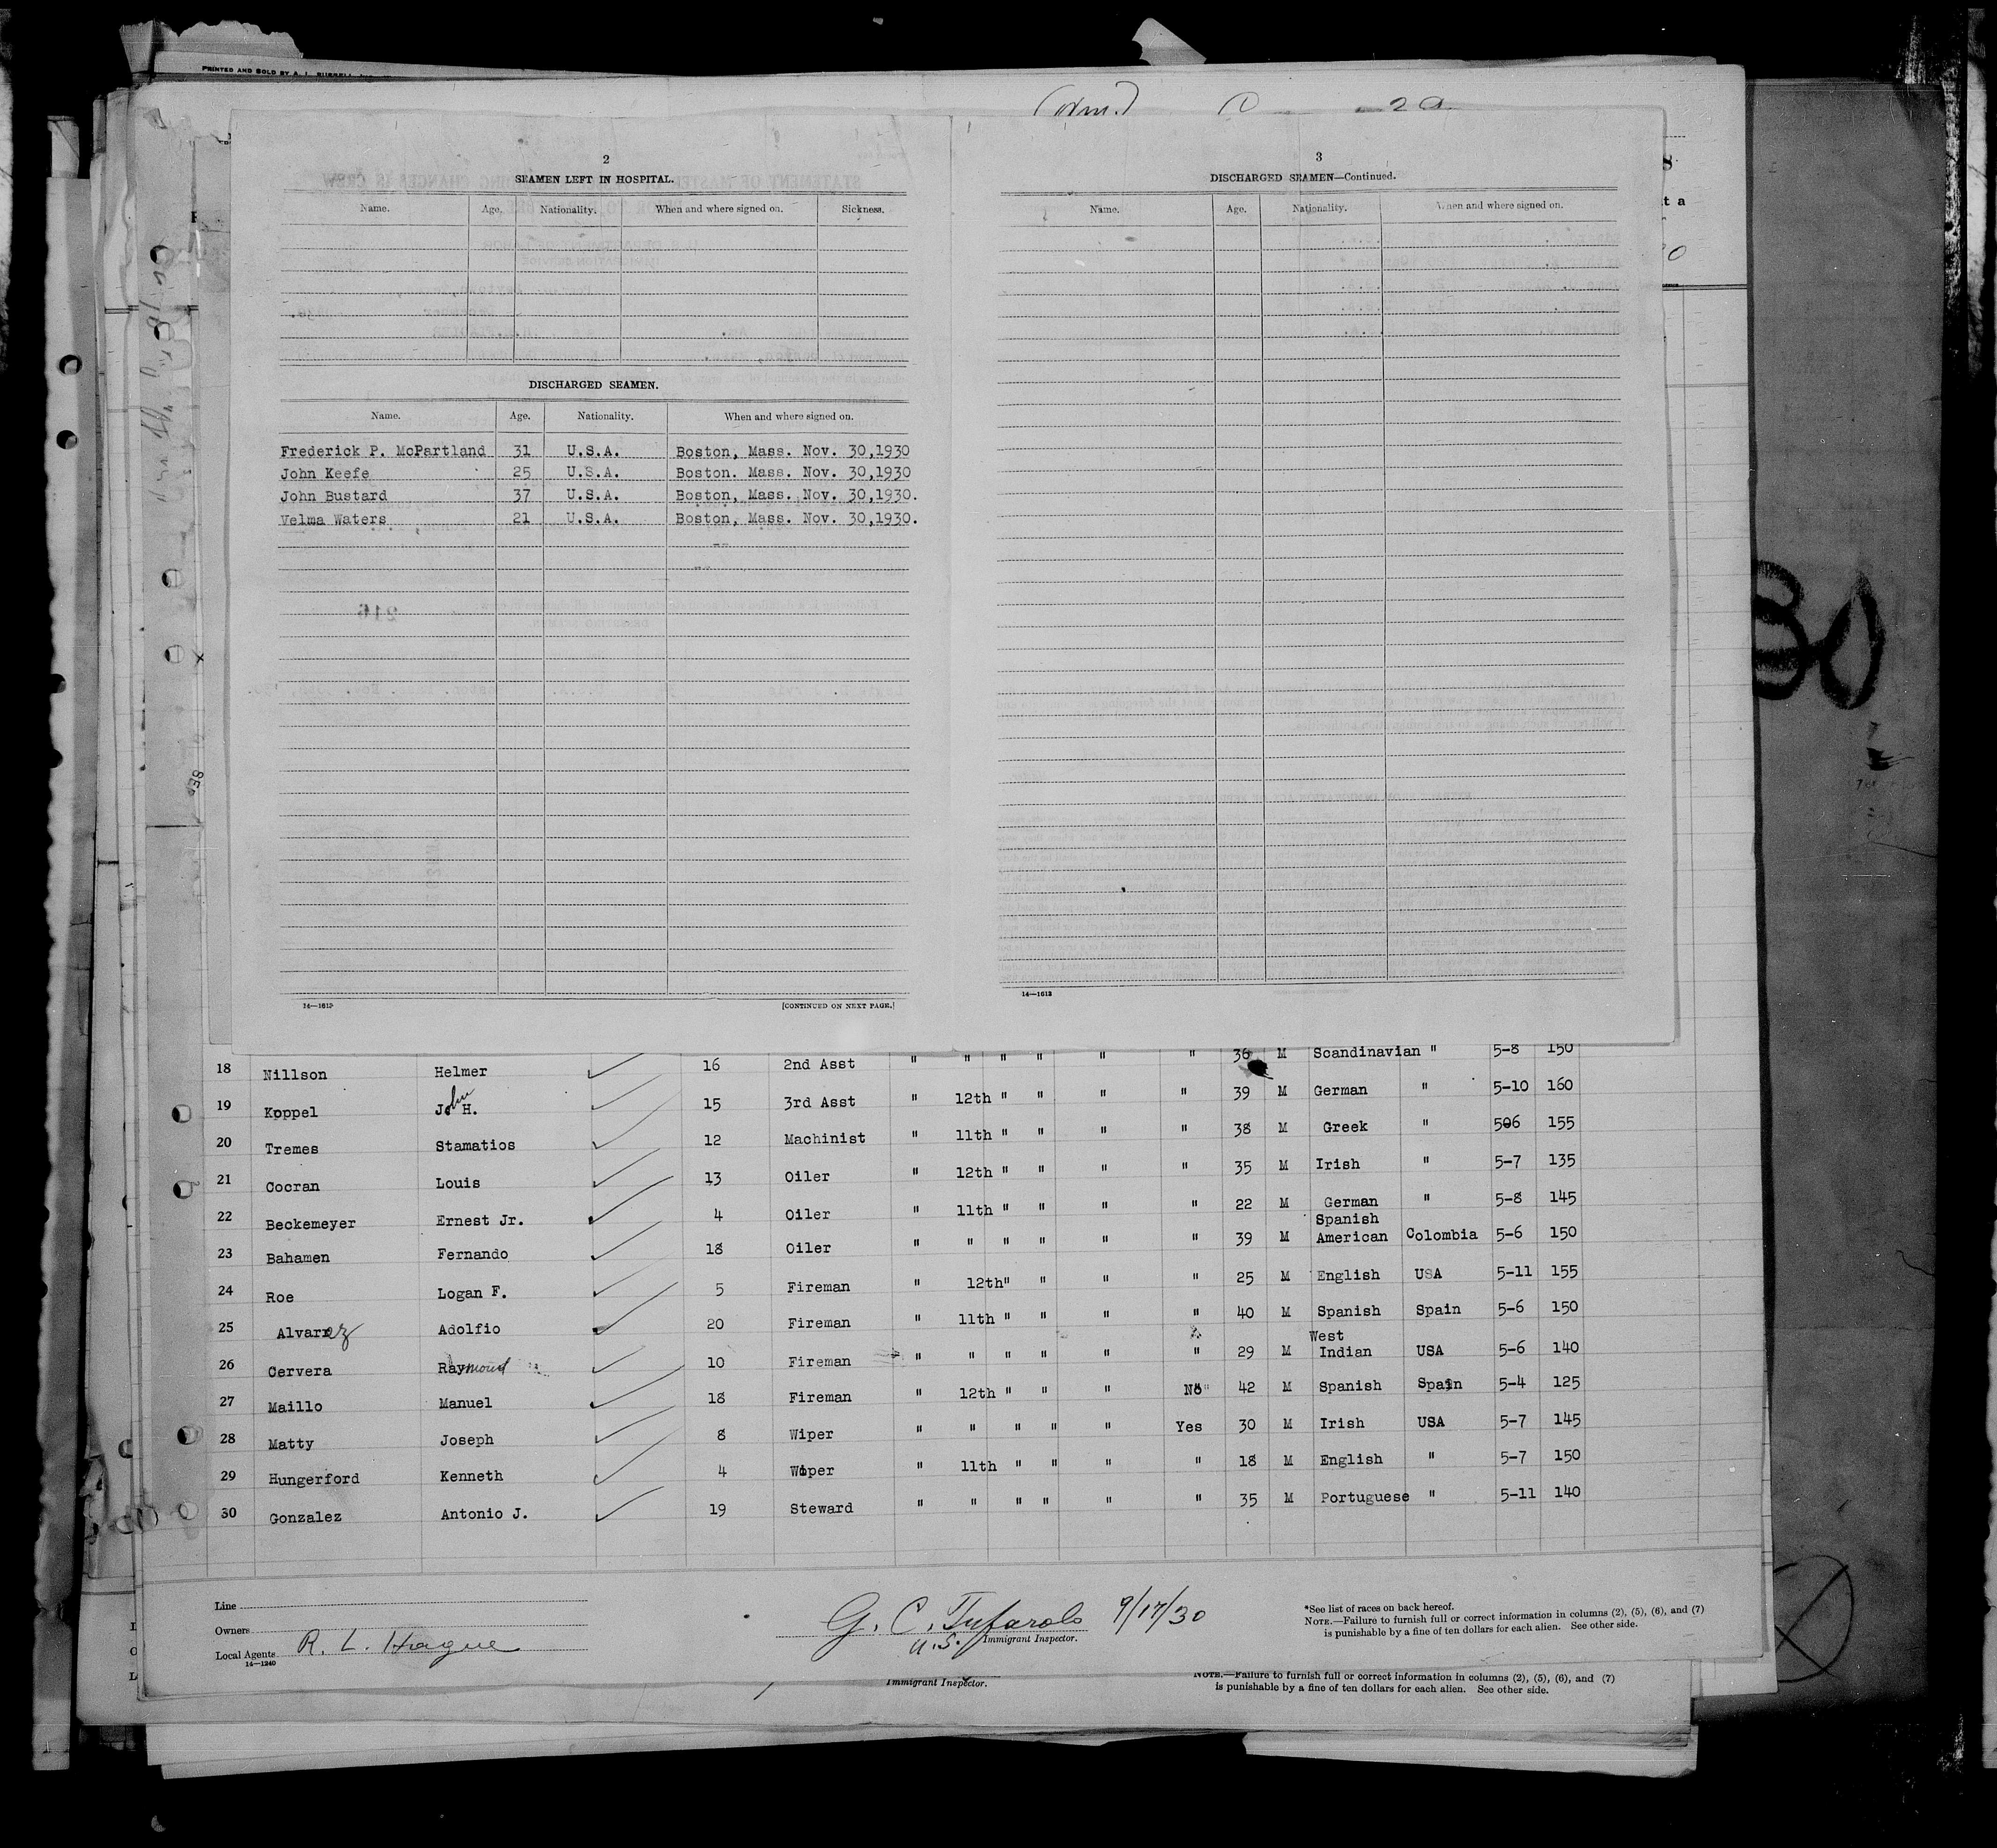 PRINTED AND SOLD BY A. L. RUSSELL, INC.
2
SEAMEN LEFT IN HOSPITAL.
Name. Age. Nationality. When and where signed on. Sickness.
DISCHARGED SEAMEN.
Name. Age. Nationality. When and where signed on.
Frederick P. McPartland 31 U.S.A. Boston, Mass. Nov. 30,1930
John Keefe 25 U.S.A. Boston. Mass. Nov. 30,1930
John Bustard 37 U.S.A. Boston, Mass. Nov. 30,1930.
Velma Waters 21 U.S.A. Boston, Mass. Nov. 30,1930.
14—1613 [CONTINUED ON NEXT PAGE.]
3
DISCHARGED SEAMEN—Continued.
Name. Age. Nationality. When and where signed on.
14—1613
18 Nillson Helmer 16 2nd Asst " " " " " " 36 M Scandinavian " 5-8 150
19 Koppel John H. 15 3rd Asst " 12th " " " " 39 M German " 5-10 160
20 Tremes Stamatios 12 Machinist " 11th " " " " 38 M Greek " 506 155
21 Cocran Louis 13 Oiler " 12th " " " " 35 M Irish " 5-7 135
22 Beckemeyer Ernest Jr. 4 Oiler " 11th " " " " 22 M German " 5-8 145
23 Bahamen Fernando 18 Oiler " " " " " " 39 M Spanish American Colombia 5-6 150
24 Roe Logan F. 5 Fireman " 12th " " " " 25 M English USA 5-11 155
25 Alvarez Adolfio 20 Fireman " 11th " " " " 40 M Spanish Spain 5-6 150
26 Cervera Raymond 10 Fireman " " " " " " 29 M West Indian USA 5-6 140
27 Maillo Manuel 18 Fireman " 12th " " " No 42 M Spanish Spain 5-4 125
28 Matty Joseph 8 Wiper " " " " " Yes 30 M Irish USA 5-7 145
29 Hungerford Kenneth 4 Wiper " 11th " " " " 18 M English " 5-7 150
30 Gonzalez Antonio J. 19 Steward " " " " " " 35 M Portuguese " 5-11 140
Line
Owners
Local Agents R. L. Hague
14—1240
G. C. Tufarolo 9/17/30
U.S. Immigrant Inspector.
*See list of races on back hereof.
NOTE.—Failure to furnish full or correct information in columns (2), (5), (6), and (7)
is punishable by a fine of ten dollars for each alien. See other side.
Immigrant Inspector.
NOTE.—Failure to furnish full or correct information in columns (2), (5), (6), and (7)
is punishable by a fine of ten dollars for each alien. See other side.